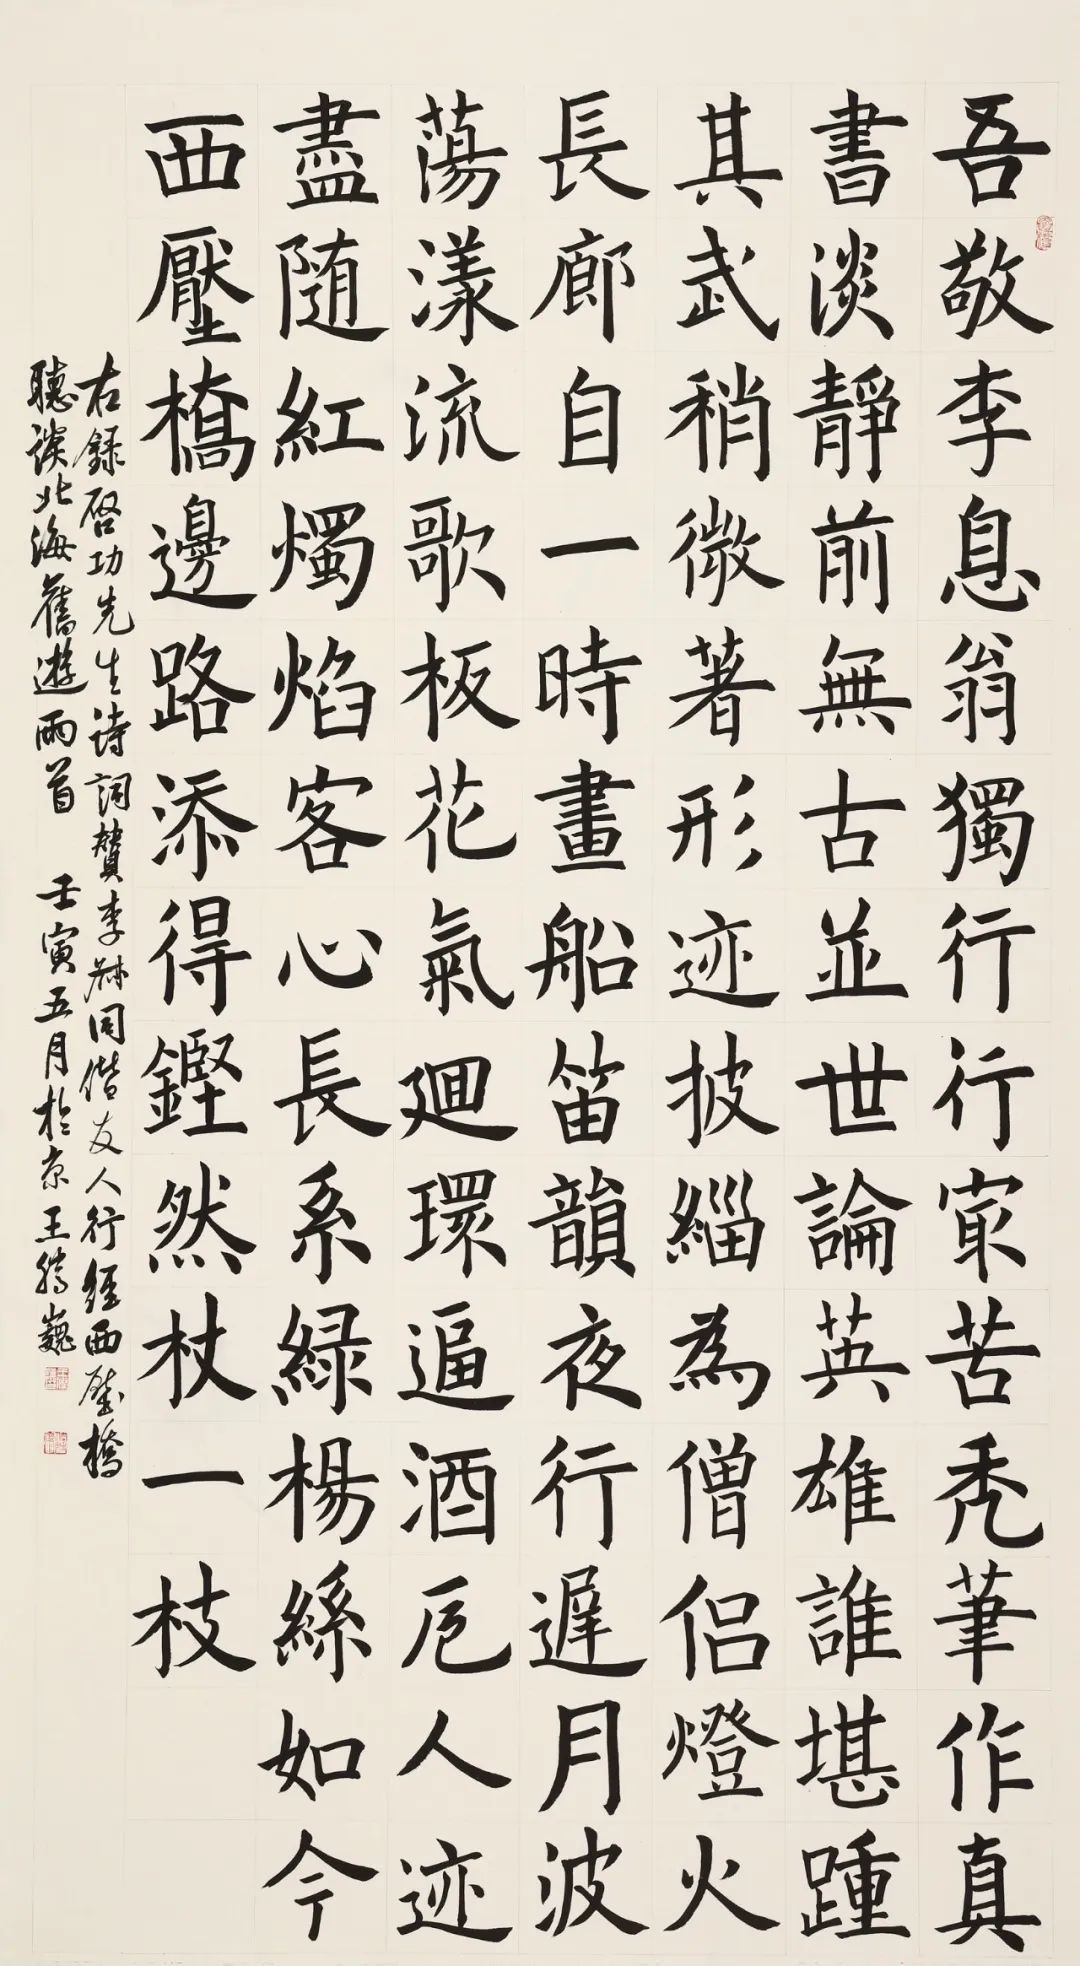 吾敬李息翁獨行行冣苦秃筆作真
書淡静前無古並世論英雄誰堪踵
其武稍微著形迹披緇為僧侣燈火
長廊自一時畫船笛韻夜行遲月波
蕩漾流歌板花氣迴環逼酒卮人迹
盡随紅燭焰客心長系緑楊絲如今
西壓橋邊路添得鏗然杖一枝
右録啓功先生诗詞贊李叔同偕友人行經西壓橋
聽談北海舊遊兩首 壬寅五月於京王腾巍